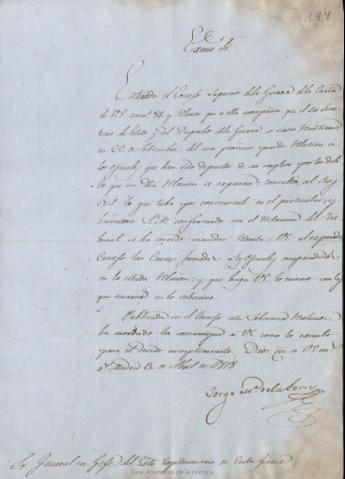 194
Exmo. Sr.
Enterado el Consejo Supremo de la Guerra de la Carta
de V.E. num. 81 y Relacion que a ella acompaña, que el Sor. Secre-
tario de Estado y del Despacho de la Guerra se sirvio remitirme
en 20 de Setiembre del año proximo pasado relativa a
los oficiales que han sido depuestos de sus empleos por los deli-
tos que en dha Relacion se expresan, consultó al Rey
lo que tubo por conveniente en el particular, y
S.M. conformado con el dictamen del Tri-
bunal se ha servido mandar remita V.E. al expresado
Consejo las Causas formadas a los oficiales comprendidos
en la citada Relacion, y que haga V.E. lo mismo con las
que ocurran en lo subcesivo.
Publicada en el Consejo esta Soberana resolucion
ha acordado la comunique a V.E. como lo executo
para el devido cumplimiento. Dios gue. a V.E. ms.
as. Madrid de Abril de 1818.
Jorge Ma. de la Torre
Sr. General en Gefe del Exto. Expedicionario de Costa firme
Real Academia de la Historia